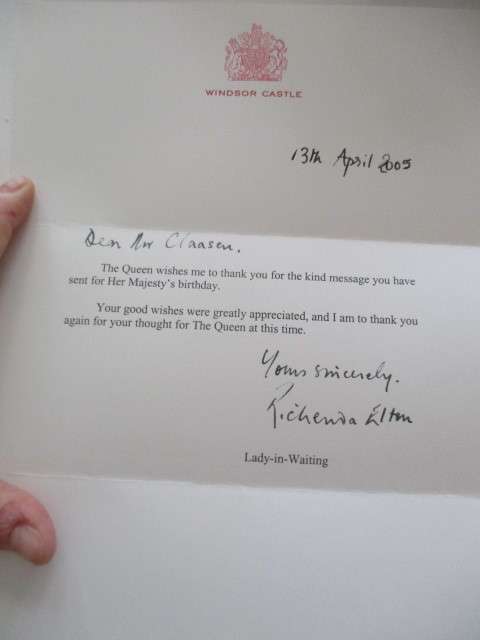 WINDSOR CASTLE
13th April 2005
Dear Mr Claasen.
The Queen wishes me to thank you for the kind message you have
sent for Her Majesty's birthday.
Your good wishes were greatly appreciated, and I am to thank you
again for your thought for The Queen at this time.
Yours sincerely.
Richenda Elton
Lady-in-Waiting